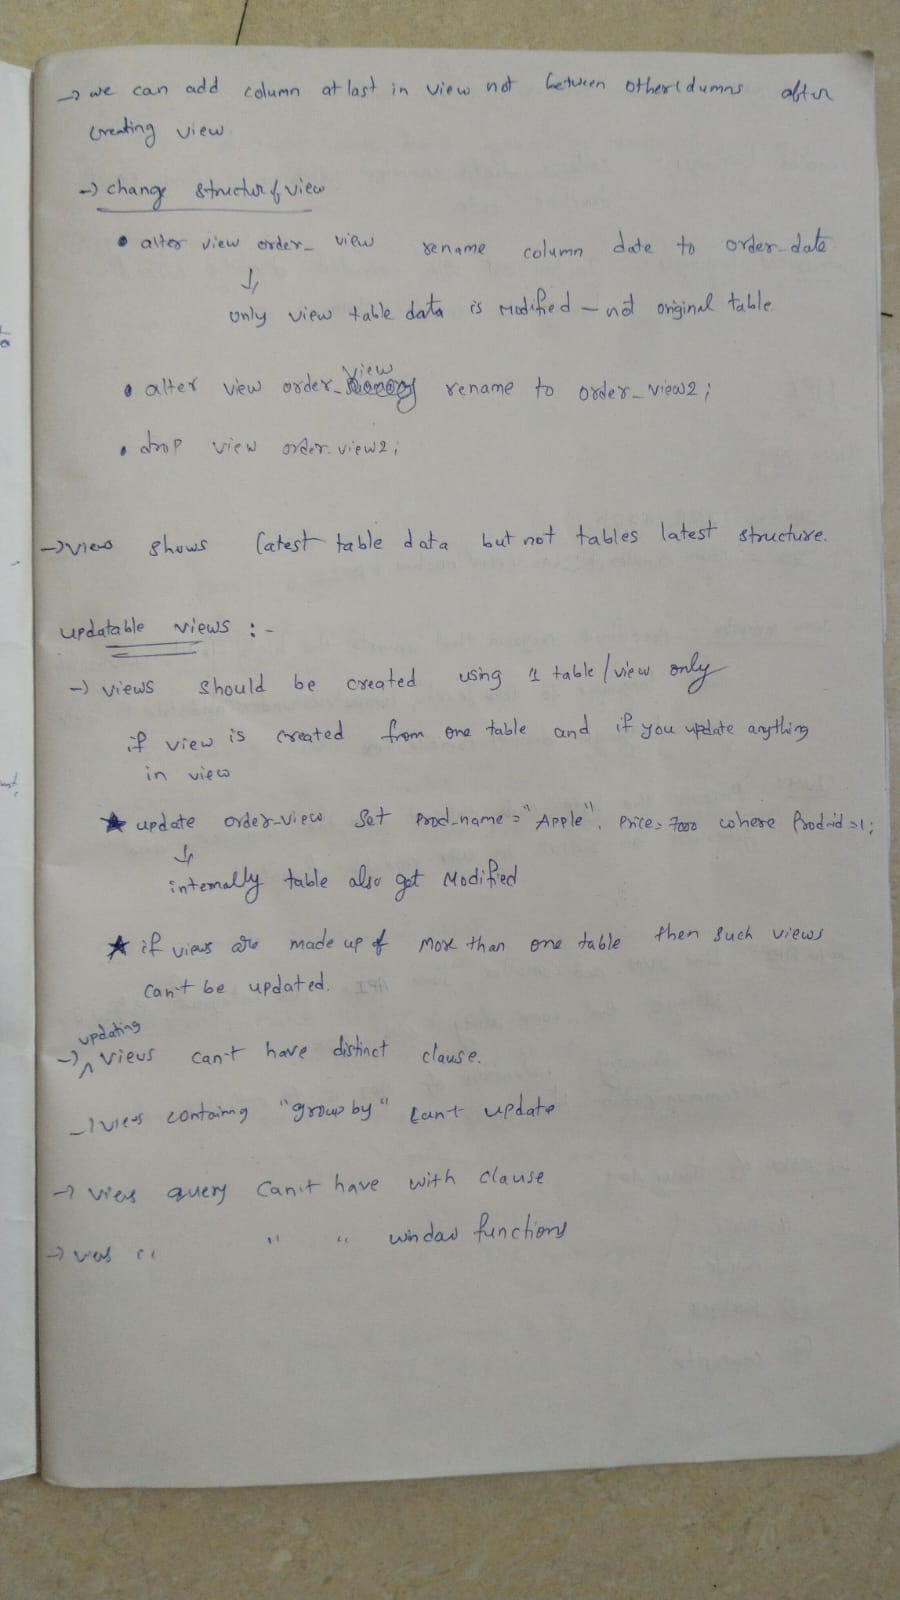 → we can add column at last in view not between other columns after
creating view
→ change structure of view
• alter view order_view rename column date to order_date
↓
only view table data is modified – not original table
• alter view order_view rename to order_view2;
• drop view order_view2;
→ view shows latest table data but not tables latest structure.
updatable views :-
→ views should be created using 1 table/view only
if view is created from one table and if you update anything
in view
★ update order_view set prod_name = "Apple", price = 7000 where prod_id = 1;
↓
internally table also get modified
★ if views are made up of more than one table then such views
can't be updated.
updating
→ ^ views can't have distinct clause.
→ views containing "group by" can't update
→ view query can't have with clause
→ view " " " window functions